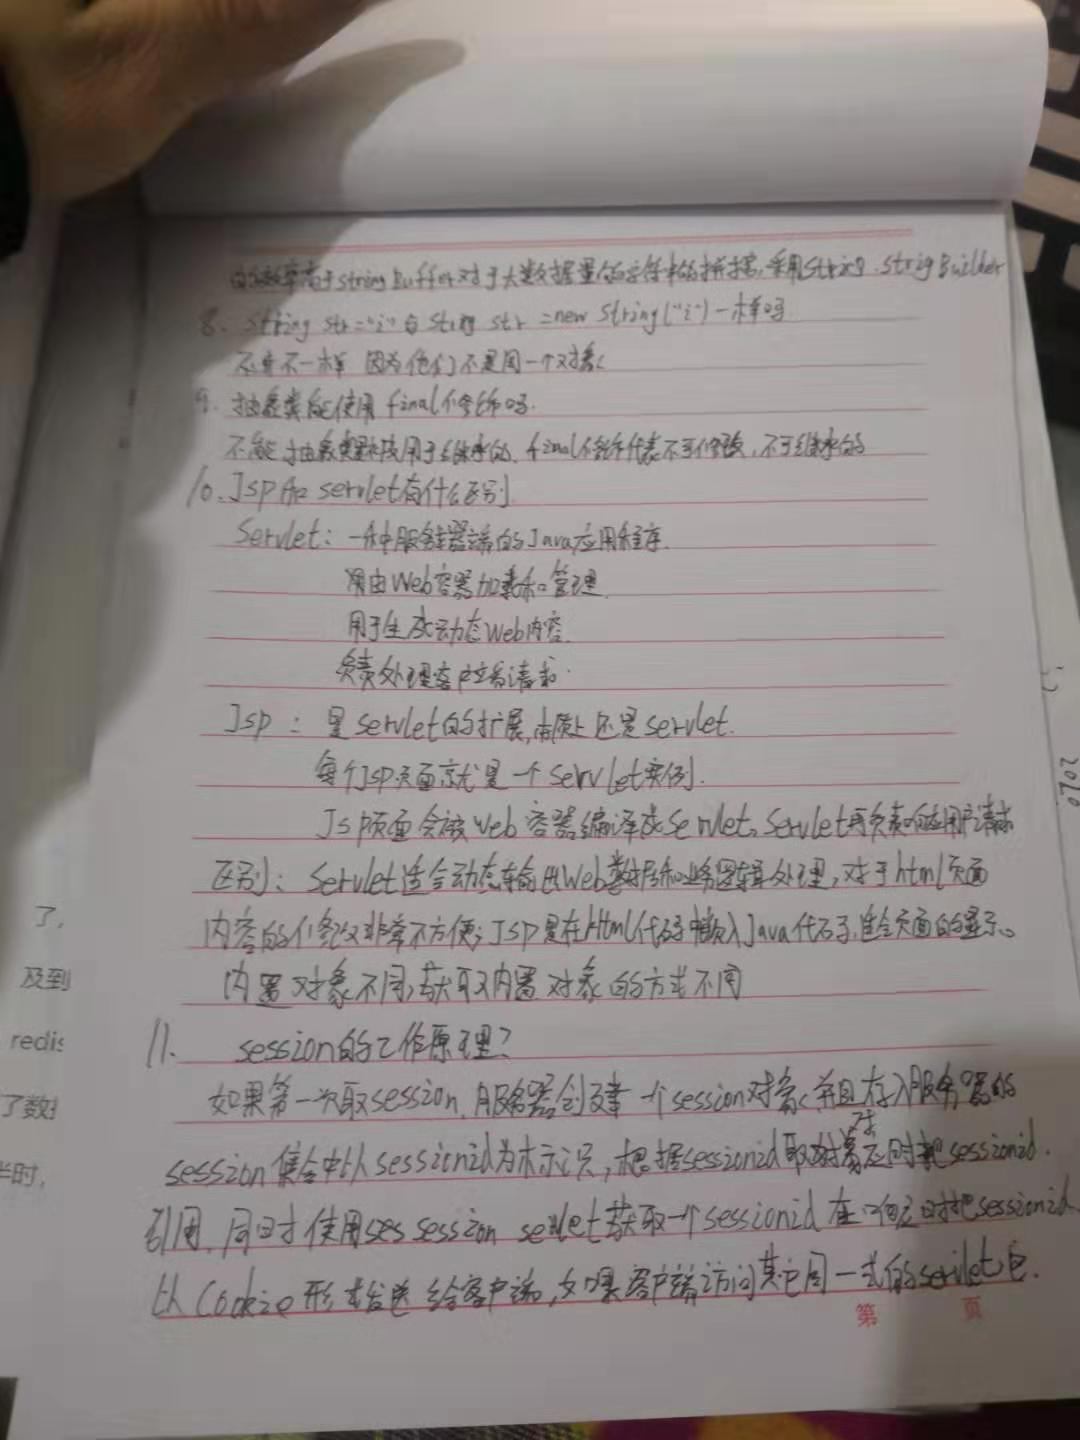 的效率高于string Buffer对于大数据量的字符串的拼接,采用String .String Builder
8. String str="i"与String str =new String("i")一样吗
不一样 因为他们不是同一个对象
9. 抽象类能使用 final修饰吗.
不能 抽象类是被用于继承的. final修饰代表不可修改,不可继承的
10.Jsp和 servlet有什么区别
Servlet: 一种服务器端的Java应用程序.
由Web容器加载和管理
用于生成动态Web内容.
负责处理客户端请求.
Jsp : 是servlet的扩展,本质上还是servlet.
每个JSP页面就是一个servlet实例.
Jsp页面会被web容器编译成Servlet,Servlet再负责响应用户请求
区别: Servlet适合动态输出Web数据和业务逻辑处理,对于html页面
内容的修改非常不方便;JSP是在Html代码中嵌入Java代码,适合页面的显示。
内置对象不同,获取内置对象的方式不同
11. session的工作原理?
如果第一次取session,服务器创建一个session对象,并且存入服务器的
session集合中以sessionid为标识,根据sessionid取对应时把sessionid.
引用,同时使用ses session servlet获取一个sessionid在响应时把sessionid
以Cookie形式发送给客户端,如果客户端访问其它同一式的servlet它.
第 页
了,
及到
redis
了数据
时,
2020